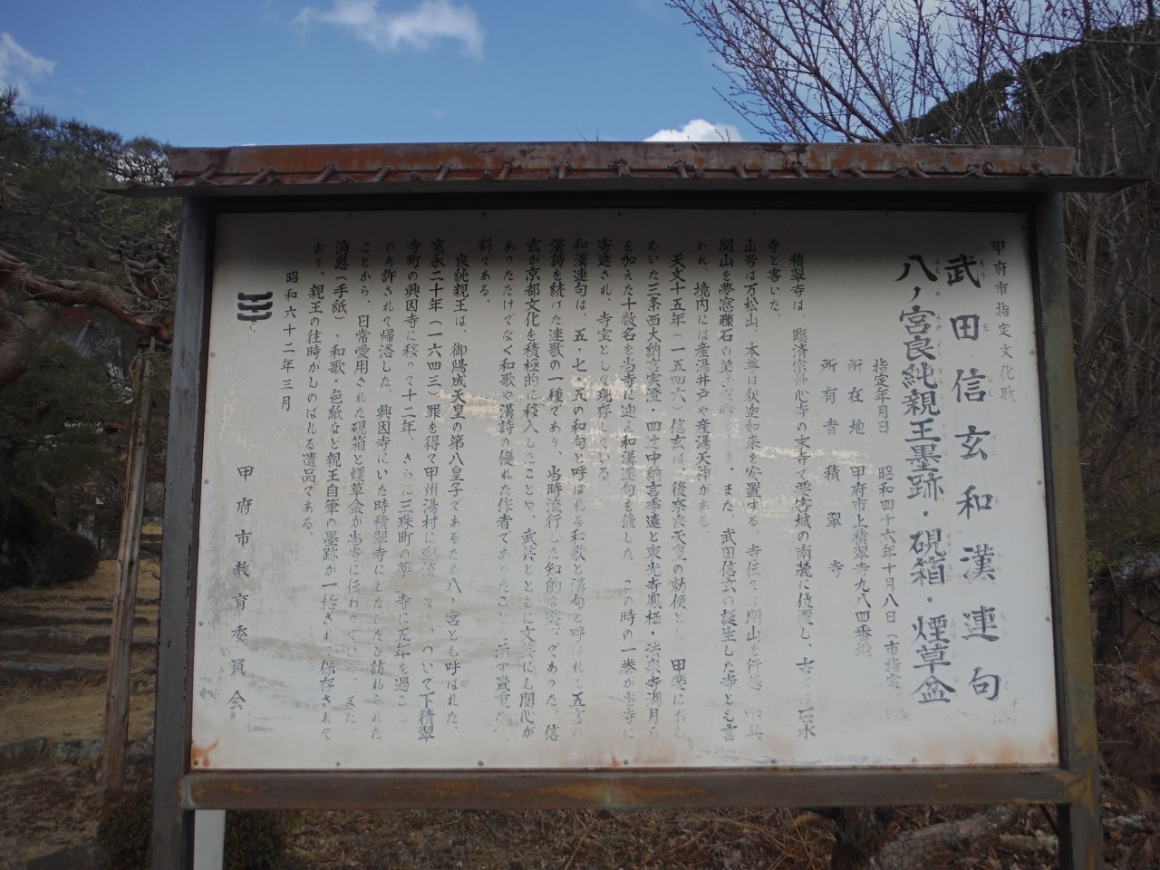 甲府市指定文化財
武田信玄和漢連句
八ノ宮良純親王墨跡・硯箱・煙草盆
指定年月日 昭和四十六年十月八日（市指定
所在地 甲府市上積翠寺九八四番地
所有者 積翠寺
積翠寺は、臨済宗妙心寺の末寺で要害城の南麓に位置し、古くは石水
寺と書いた。
山号は万松山、本尊は釈迦如来を安置する。寺伝では開山を行基
開山を夢窓疎石の また、武田信玄の誕生した寺とも言
われ、境内には産湯井戸や産湯天神がある。
天文十五年（一五四六）信玄は、後奈良天皇の勅使として甲斐におも
むいた三条西大納言実澄・四辻中納言季遠と東光寺鳳栖・法泉寺湖月ら
を加えた十数名を当寺に迎え和漢連句を催した。この時の一巻が当寺に
寄進され、寺宝として現存している。
和漢連句は、五・七・五の和句と呼ばれる和歌と漢句と呼ばれる五言の
漢詩を続けた連歌の一種であり、当時流行した知的な遊びであった。信
玄が京都文化を積極的に移入したことや、武技とともに文芸にも関心が
あっただけでなく和歌や漢詩の優れた作者であったことを示す貴重な
料である。
良純親王は、御陽成天皇の第八皇子であるため八ノ宮とも呼ばれた。
寛永二十年（一六四三）罪を得て甲州湯村に配流となり ついで下積翠
寺町の興因寺に移って十二年、さらに三珠町の 寺に五年を過ごし
のち許されて帰洛した。興因寺にいた時積翠寺にもしたしく訪れられた
ことから、日常愛用された硯箱と煙草盆が当寺に伝わっている。また、
消息（手紙）・和歌・色紙など親王自筆の墨跡が一括されて保存されて
おり、親王の往時がしのばれる遺品である。
昭和六十二年三月
甲府市教育委員会